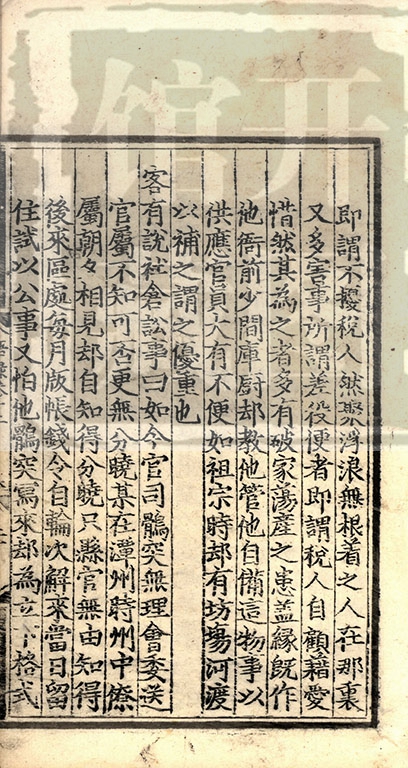 即謂不擾稅人然聚浮浪無根着之人在那裏
又多害事所謂差役便者即謂稅人自顧藉愛
惜然其為之者多有破家蕩產之患盖緣既作
他衙前少間庫厨却教他管他自備這物事以
供應官員大有不便如祖宗時却有坊場河渡
以補之謂之優重也
客有說社倉訟事曰如今官司鶻突無理會委送
官屬不知可否更無分曉某在潭州時州中僚
屬朝々相見却自知得分曉只縣官無由知得
後來區處每月版帳錢令自輪次解來當日留
住試以公事又怕他鶻突寫來却為立下格式